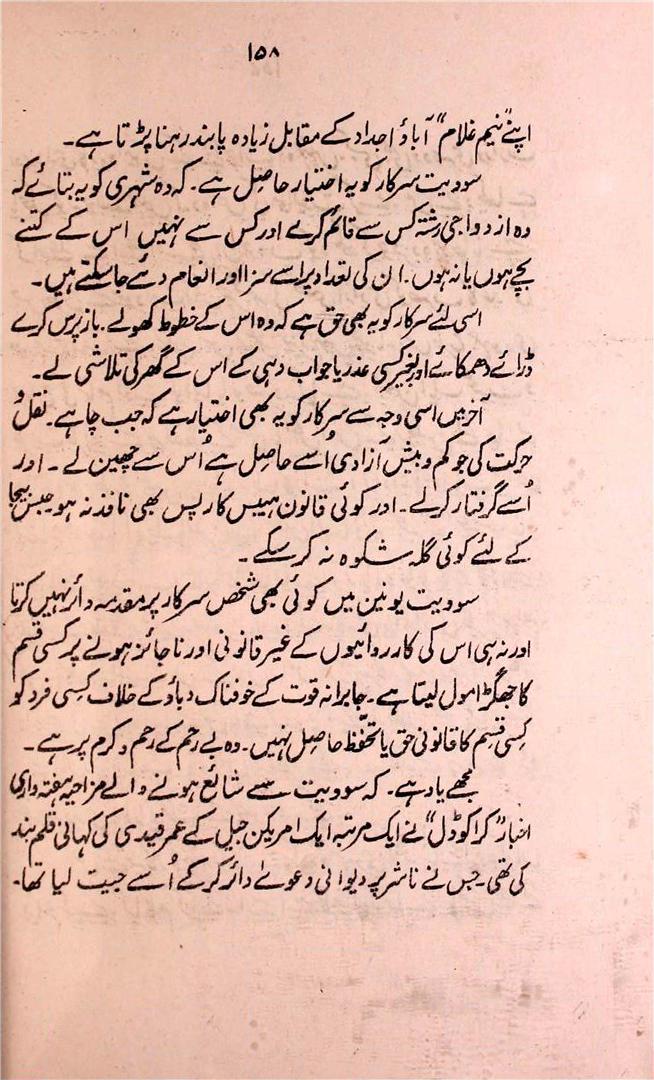 ۱۵۸
اپنے "نیم غلام" آباؤ اجداد کے مقابل زیادہ پابند رہنا پڑتا ہے۔
سوویت سرکار کو یہ اختیار حاصل ہے۔ کہ وہ شہری کو یہ بتائے کہ
وہ ازدواجی رشتہ کس سے قائم کرے اور کس سے نہیں اس کے کتنے
بچے ہوں یا نہ ہوں۔ ان کی تعداد پر اسے سزا اور انعام دئے جا سکتے ہیں۔
اسی لئے سرکار کو یہ بھی حق ہے کہ وہ اس کے خطوط کھولے۔ بازپرس کرے
ڈرائے دھمکائے اور بغیر کسی عذر یا جواب دہی کے اس کے گھر کی تلاشی لے۔
آخر میں اسی وجہ سے سرکار کو یہ بھی اختیار ہے کہ جب چاہے۔ نقل و
حرکت کی جو کم و بیش آزادی اُسے حاصل ہے اُس سے چھین لے۔ اور
اُسے گرفتار کرلے۔ اور کوئی قانون ہیبس کارپس بھی نافذ نہ ہو حبس بیجا
کے لئے کوئی گلہ شکوہ نہ کر سکے۔
سوویت یونین میں کوئی بھی شخص سرکار پر مقدمہ دائر نہیں کرتا
اور نہ ہی اس کی کارروائیوں کے غیر قانونی اور ناجائز ہونے پر کسی قسم
کا جھگڑا مول لیتا ہے۔ جابرانہ قوت کے خوفناک دباؤ کے خلاف کسی فرد کو
کسی قسم کا قانونی حق یا تحفّظ حاصل نہیں۔ وہ بے رحم کے رحم و کرم پر ہے۔
مجھے یاد ہے۔ کہ سوویت سے شائع ہونے والے مزاحیہ ہفتہ واری
اخبار "کراکوڈل" نے ایک مرتبہ ایک امریکن جیل کے عمر قیدی کی کہانی قلم بند
کی تھی۔ جس نے ناشر پر دیوانی دعوےٰ دائر کر کے اُسے جیت لیا تھا۔